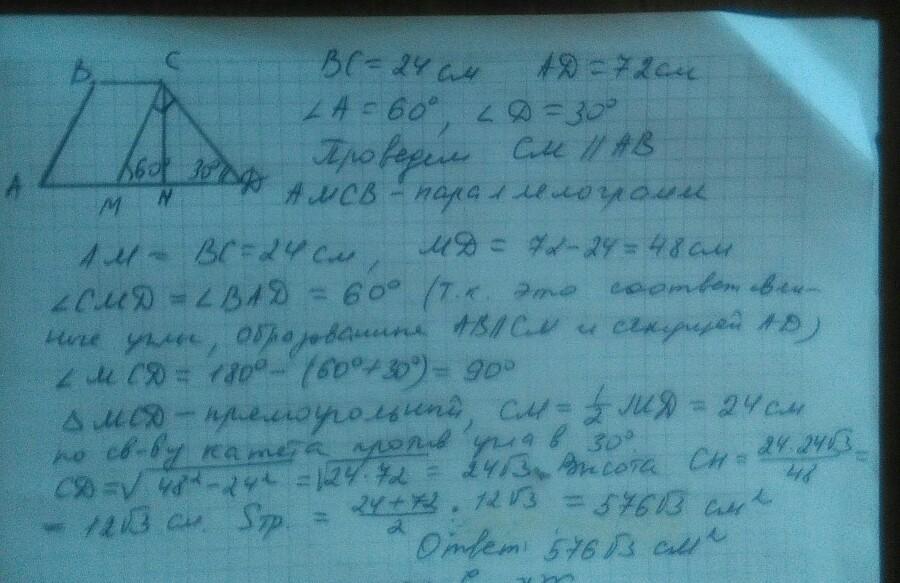 B C
A M N D
60° 30°
BC = 24 см AD = 72 см
∠A = 60°, ∠D = 30°
Проведем CM || AB
AMCB - параллелограмм
AM = BC = 24 см, MD = 72-24 = 48 см
∠CMD = ∠BAD = 60° (т.к. это соответствен-
ные углы, образованные AB||CM и секущей AD)
∠MCD = 180° - (60°+30°) = 90°
△MCD - прямоугольный, CM = 1/2 MD = 24 см
по св-ву катета против угла в 30°
CD = √(48² - 24²) = √(24·72) = 24√3. Высота CH = (24·24√3)/48 =
= 12√3 см. Sтр. = (24+72)/2 · 12√3 = 576√3 см²
Ответ: 576√3 см²